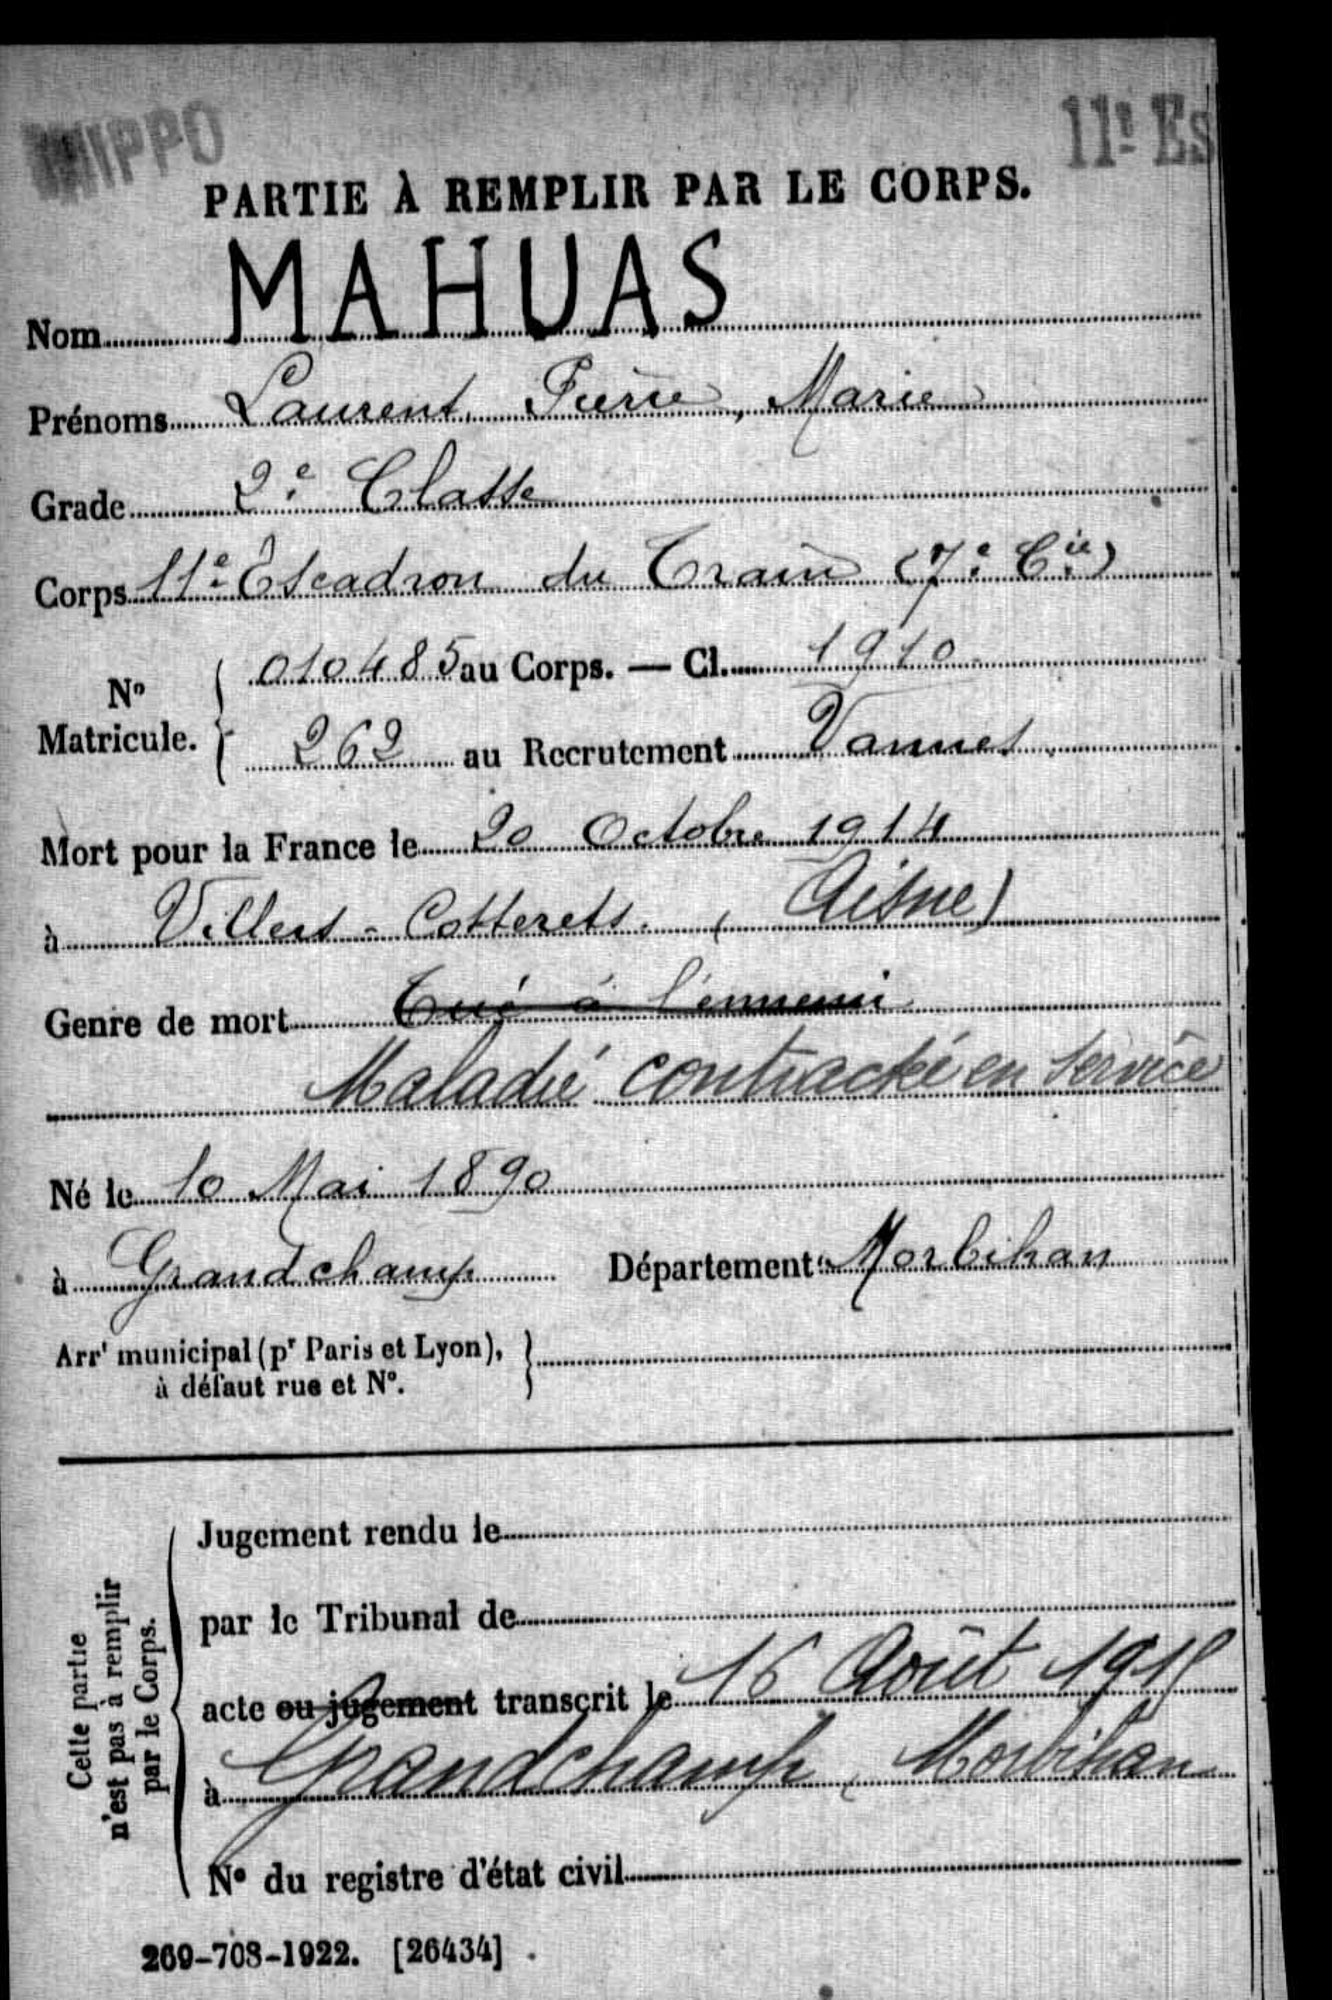 HIPPO
11e Es
PARTIE À REMPLIR PAR LE CORPS.
Nom MAHUAS
Prénoms Laurent, Pierre, Marie
Grade 2e Classe
Corps 11e Escadron du Train (7e Cie)
No Matricule. 010485 au Corps. — Cl. 1910
262 au Recrutement Vannes
Mort pour la France le 20 Octobre 1914
à Villers-Cotterets. (Aisne)
Genre de mort Tué à l'ennemi
Maladie contractée en service
Né le 10 Mai 1890
à Grandchamp Département Morbihan
Arrt municipal (pr Paris et Lyon),
à défaut rue et No.
Cette partie
n'est pas à remplir
par le Corps.
Jugement rendu le
par le Tribunal de
acte ou jugement transcrit le 16 Août 1915
à Grandchamp, Morbihan
No du registre d'état civil
269-708-1922. [26434]